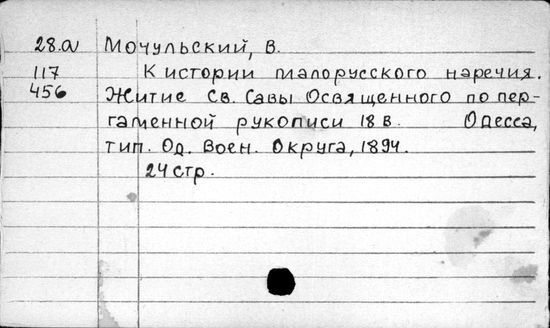 28.а Мочульский, В.
117 К истории малорусского наречия.
456 Житие Св. Савы Освященного по пер-
гаменной рукописи 18 в. Одесса,
тип. Од. Воен. Округа, 1894.
24 стр.